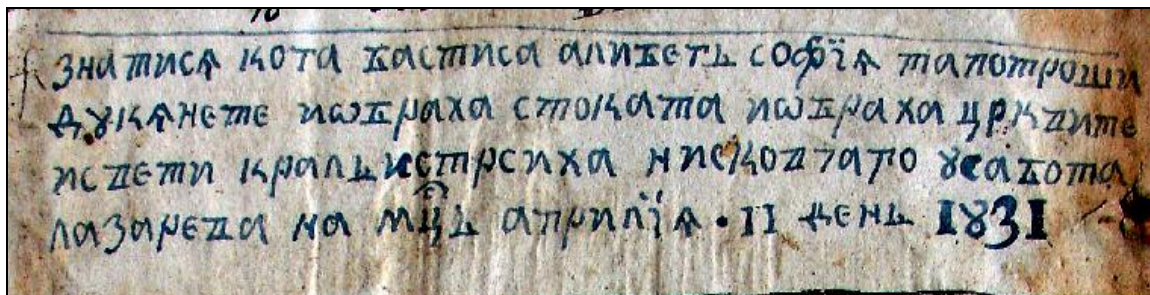 знатисѧ кога бастиса алибегъ софїѧ тапотроши
дꙋкѧнете иѡбраха стоката иѡбраха црквите
исвети кральистрсиха ꙋсабота
лазарева на мцъ априлїѧ · 11 день 1831